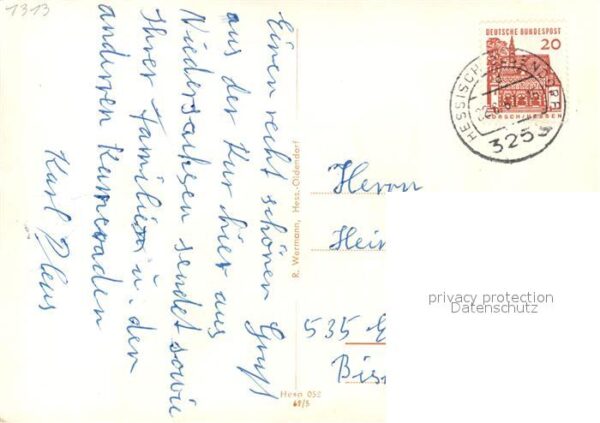 1313
Einen recht schönen Gruß
aus der Kur hier aus
Niedersachsen sendet sowie
Ihrer Familie u. den
anderen Kameraden
Karl
R. Wermann, Hess.-Oldendorf
Hexa 055
69/5
DEUTSCHE BUNDESPOST
20
LORSCH/HESSEN
HESSISCH OLDENDORF
3253
Herrn
Hein
535 E
Bis
privacy protection
Datenschutz